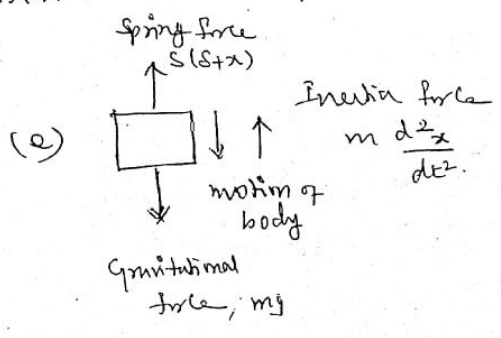 Spring force
S(δ+x)
Inertia force
m d²x/dt².
(e)
motion of
body
Gravitational
force, mg